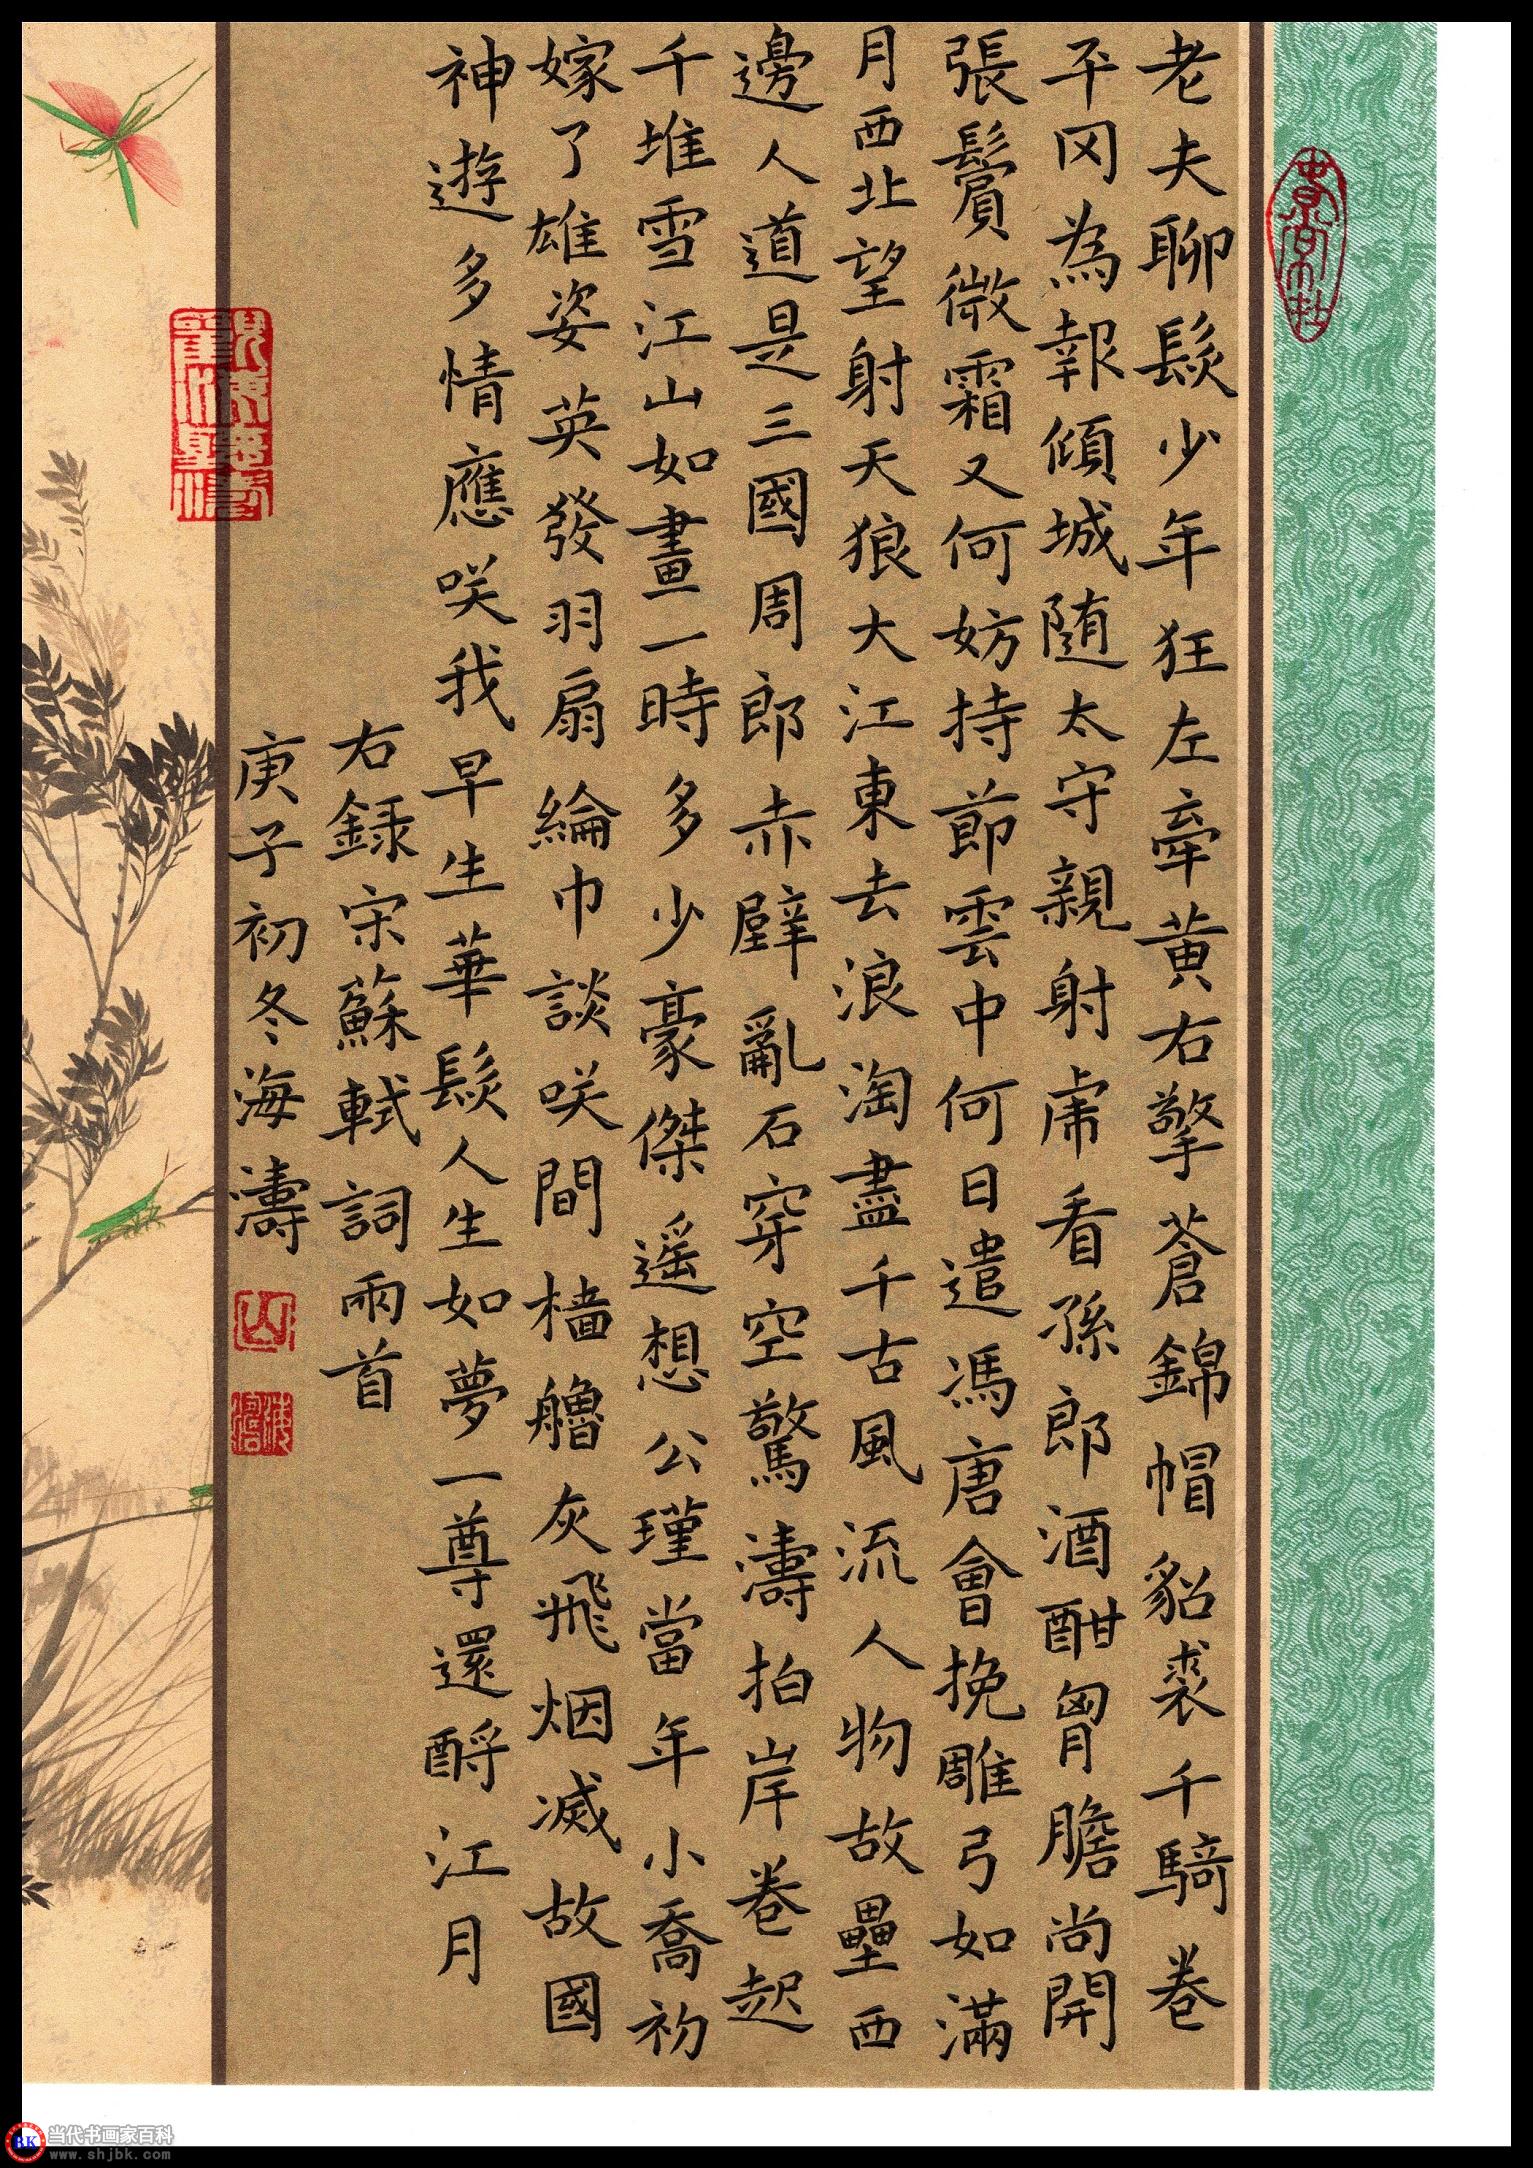 老夫聊髮少年狂左牽黄右擎蒼錦帽貂裘千騎卷
平冈為報傾城随太守親射虎看孫郎酒酣胷膽尚開
張鬢微霜又何妨持節雲中何日遣馮唐會挽雕弓如滿
月西北望射天狼大江東去浪淘盡千古風流人物故壘西
邊人道是三國周郎赤壁亂石穿空驚濤拍岸卷起
千堆雪江山如畫一時多少豪傑遥想公瑾當年小喬初
嫁了雄姿英發羽扇綸巾談咲間檣艣灰飛烟滅故國
神遊多情應咲我早生華髮人生如夢一尊還酹江月
右録宋蘇軾詞兩首
庚子初冬海濤
当代书画家百科
www.shjbk.com
BK